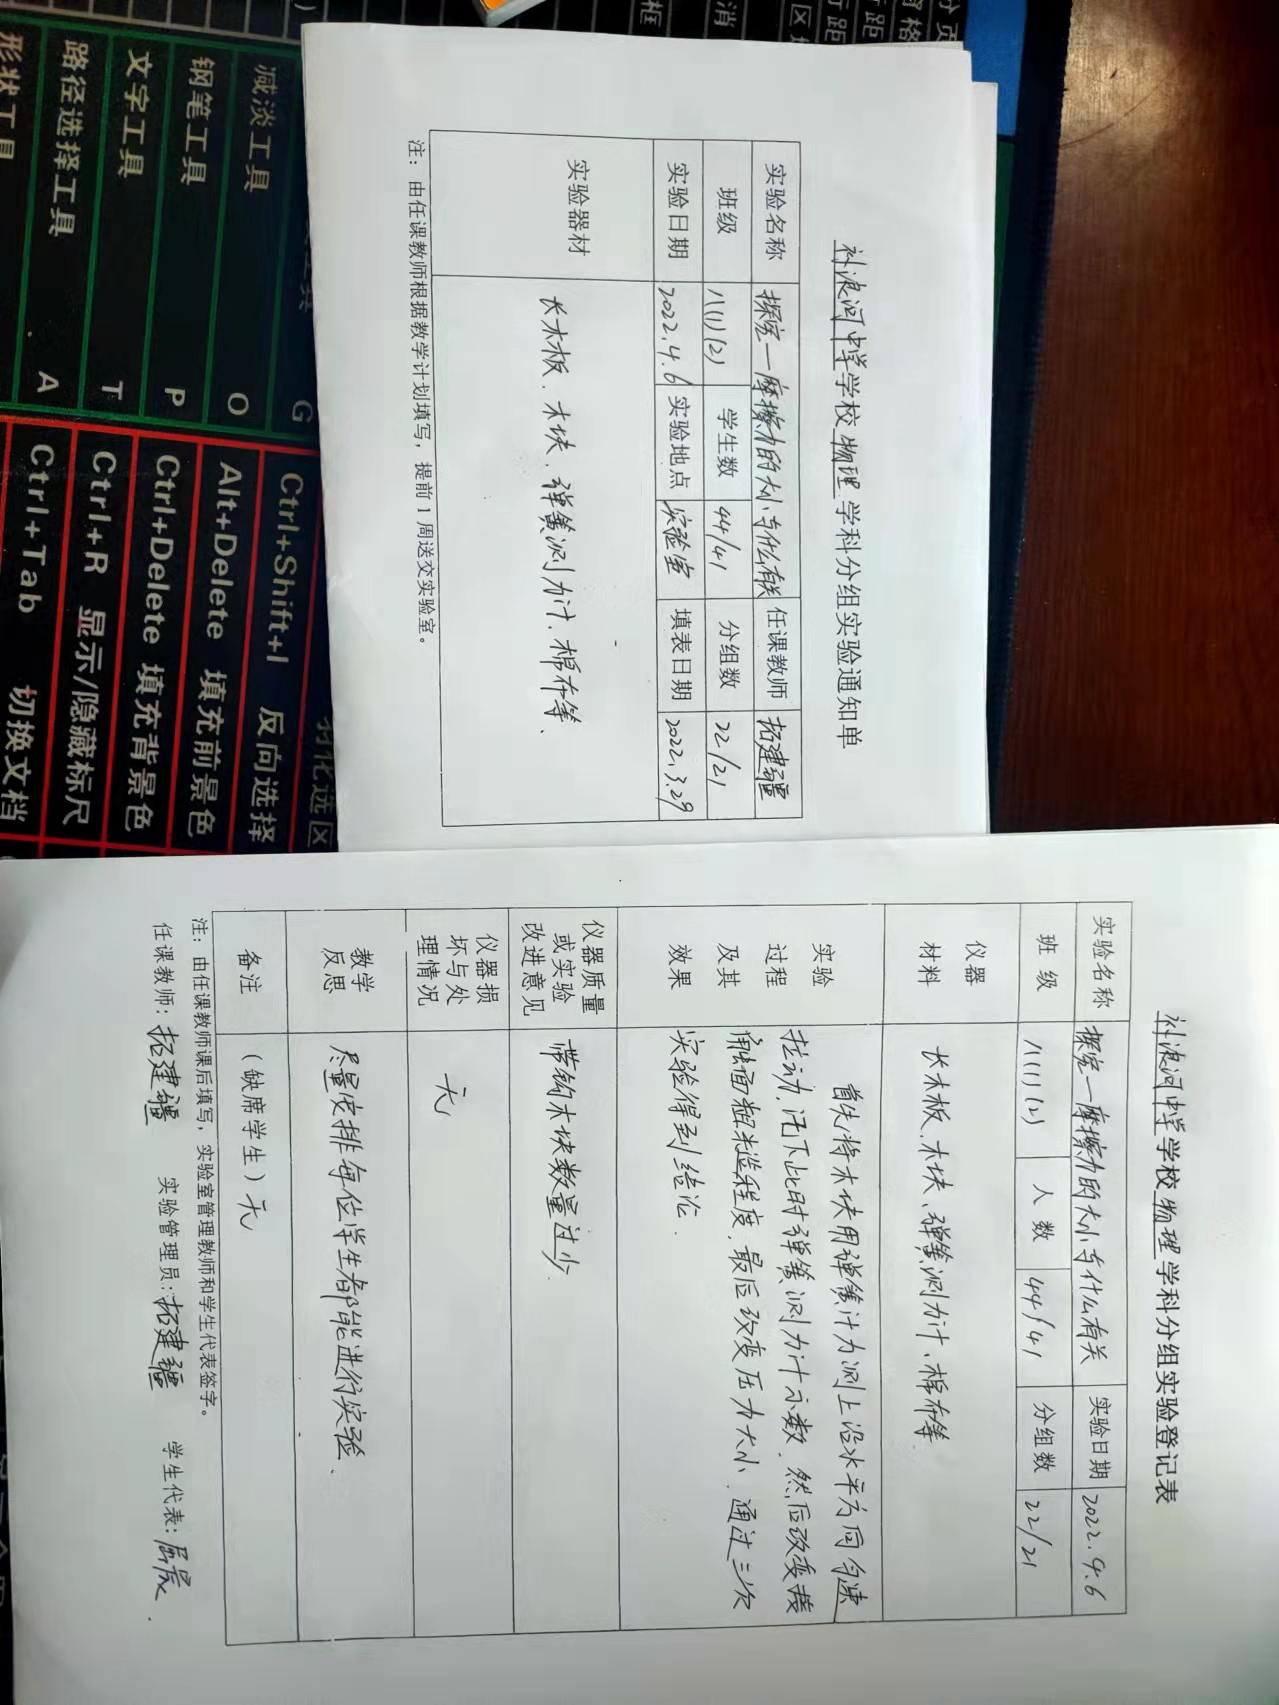 补浪河中学学校物理学科分组实验通知单
实验名称 探究—摩擦力的大小与什么有关 任课教师 拓建疆
班级 八(1)(2) 学生数 44/41 分组数 22/21
实验日期 2022.4.6 实验地点 实验室 填表日期 2022.3.29
实验器材 长木板、木块、弹簧测力计、棉布等、
注：由任课教师根据教学计划填写，提前1周送交实验室。
补浪河中学学校物理学科分组实验登记表
实验名称 探究—摩擦力的大小与什么有关 实验日期 2022.4.6
班 级 八(1)(2) 人 数 44/41 分组数 22/21
仪器
材料
长木板、木块、弹簧测力计、棉布等
实验
过程
及其
效果
首先将木块用弹簧计力测上沿水平方向匀速
拉动,记下此时弹簧测力计示数.然后改变接
触面粗糙程度.最后改变压力大小.通过三次
实验得到结论.
仪器质量
或实验
改进意见
带钩木块数量过少
仪器损
坏与处
理情况
无
教学
反思
尽量安排每位学生都能进行实验、
备注 （缺席学生）无
注：由任课教师课后填写，实验室管理教师和学生代表签字。
任课教师：拓建疆 实验管理员：拓建疆 学生代表：
减淡工具 O
钢笔工具 P
文字工具 T
路径选择工具 A
形状工具
G
Ctrl+Shift+I 反向选择
Alt+Delete 填充前景色
Ctrl+Delete 填充背景色
Ctrl+R 显示/隐藏标尺
Ctrl+Tab 切换文档
羽化选区